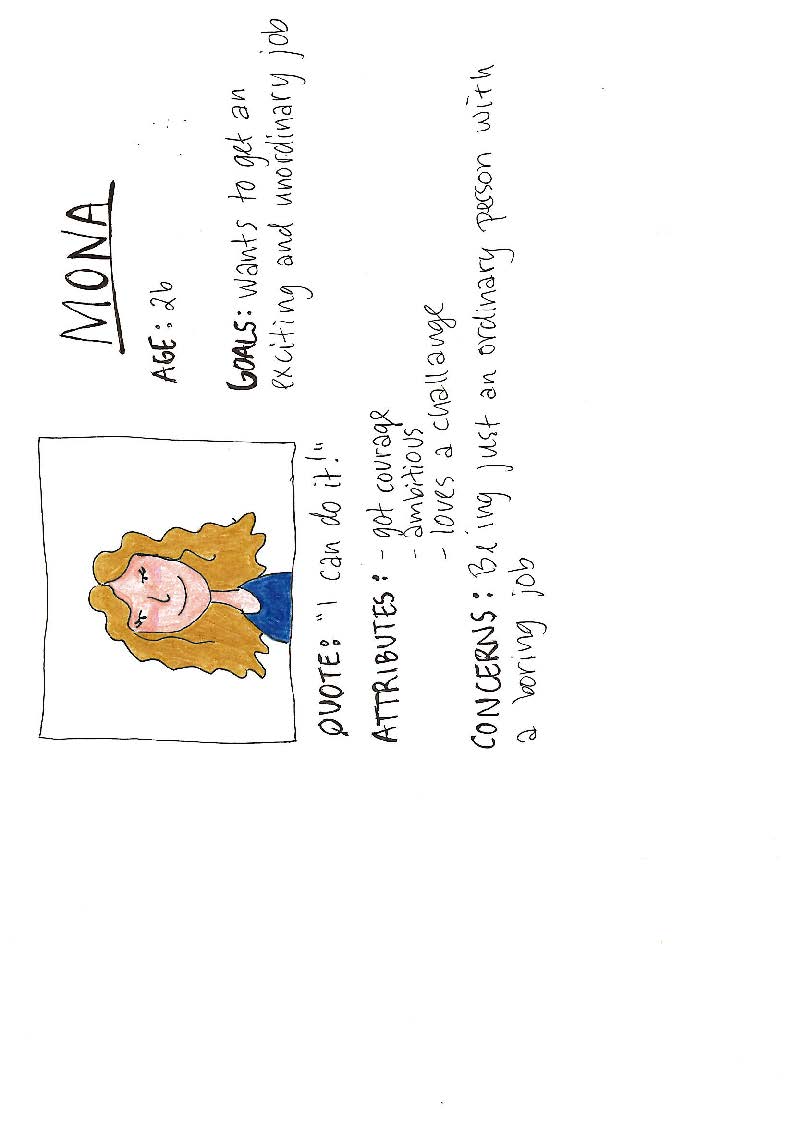 MONA
AGE: 26
GOALS: Wants to get an
exciting and unordinary job
QUOTE: "I can do it!"
ATTRIBUTES: - got courage
- ambitious
- loves a challange
CONCERNS: Being just an ordinary person with
a boring job